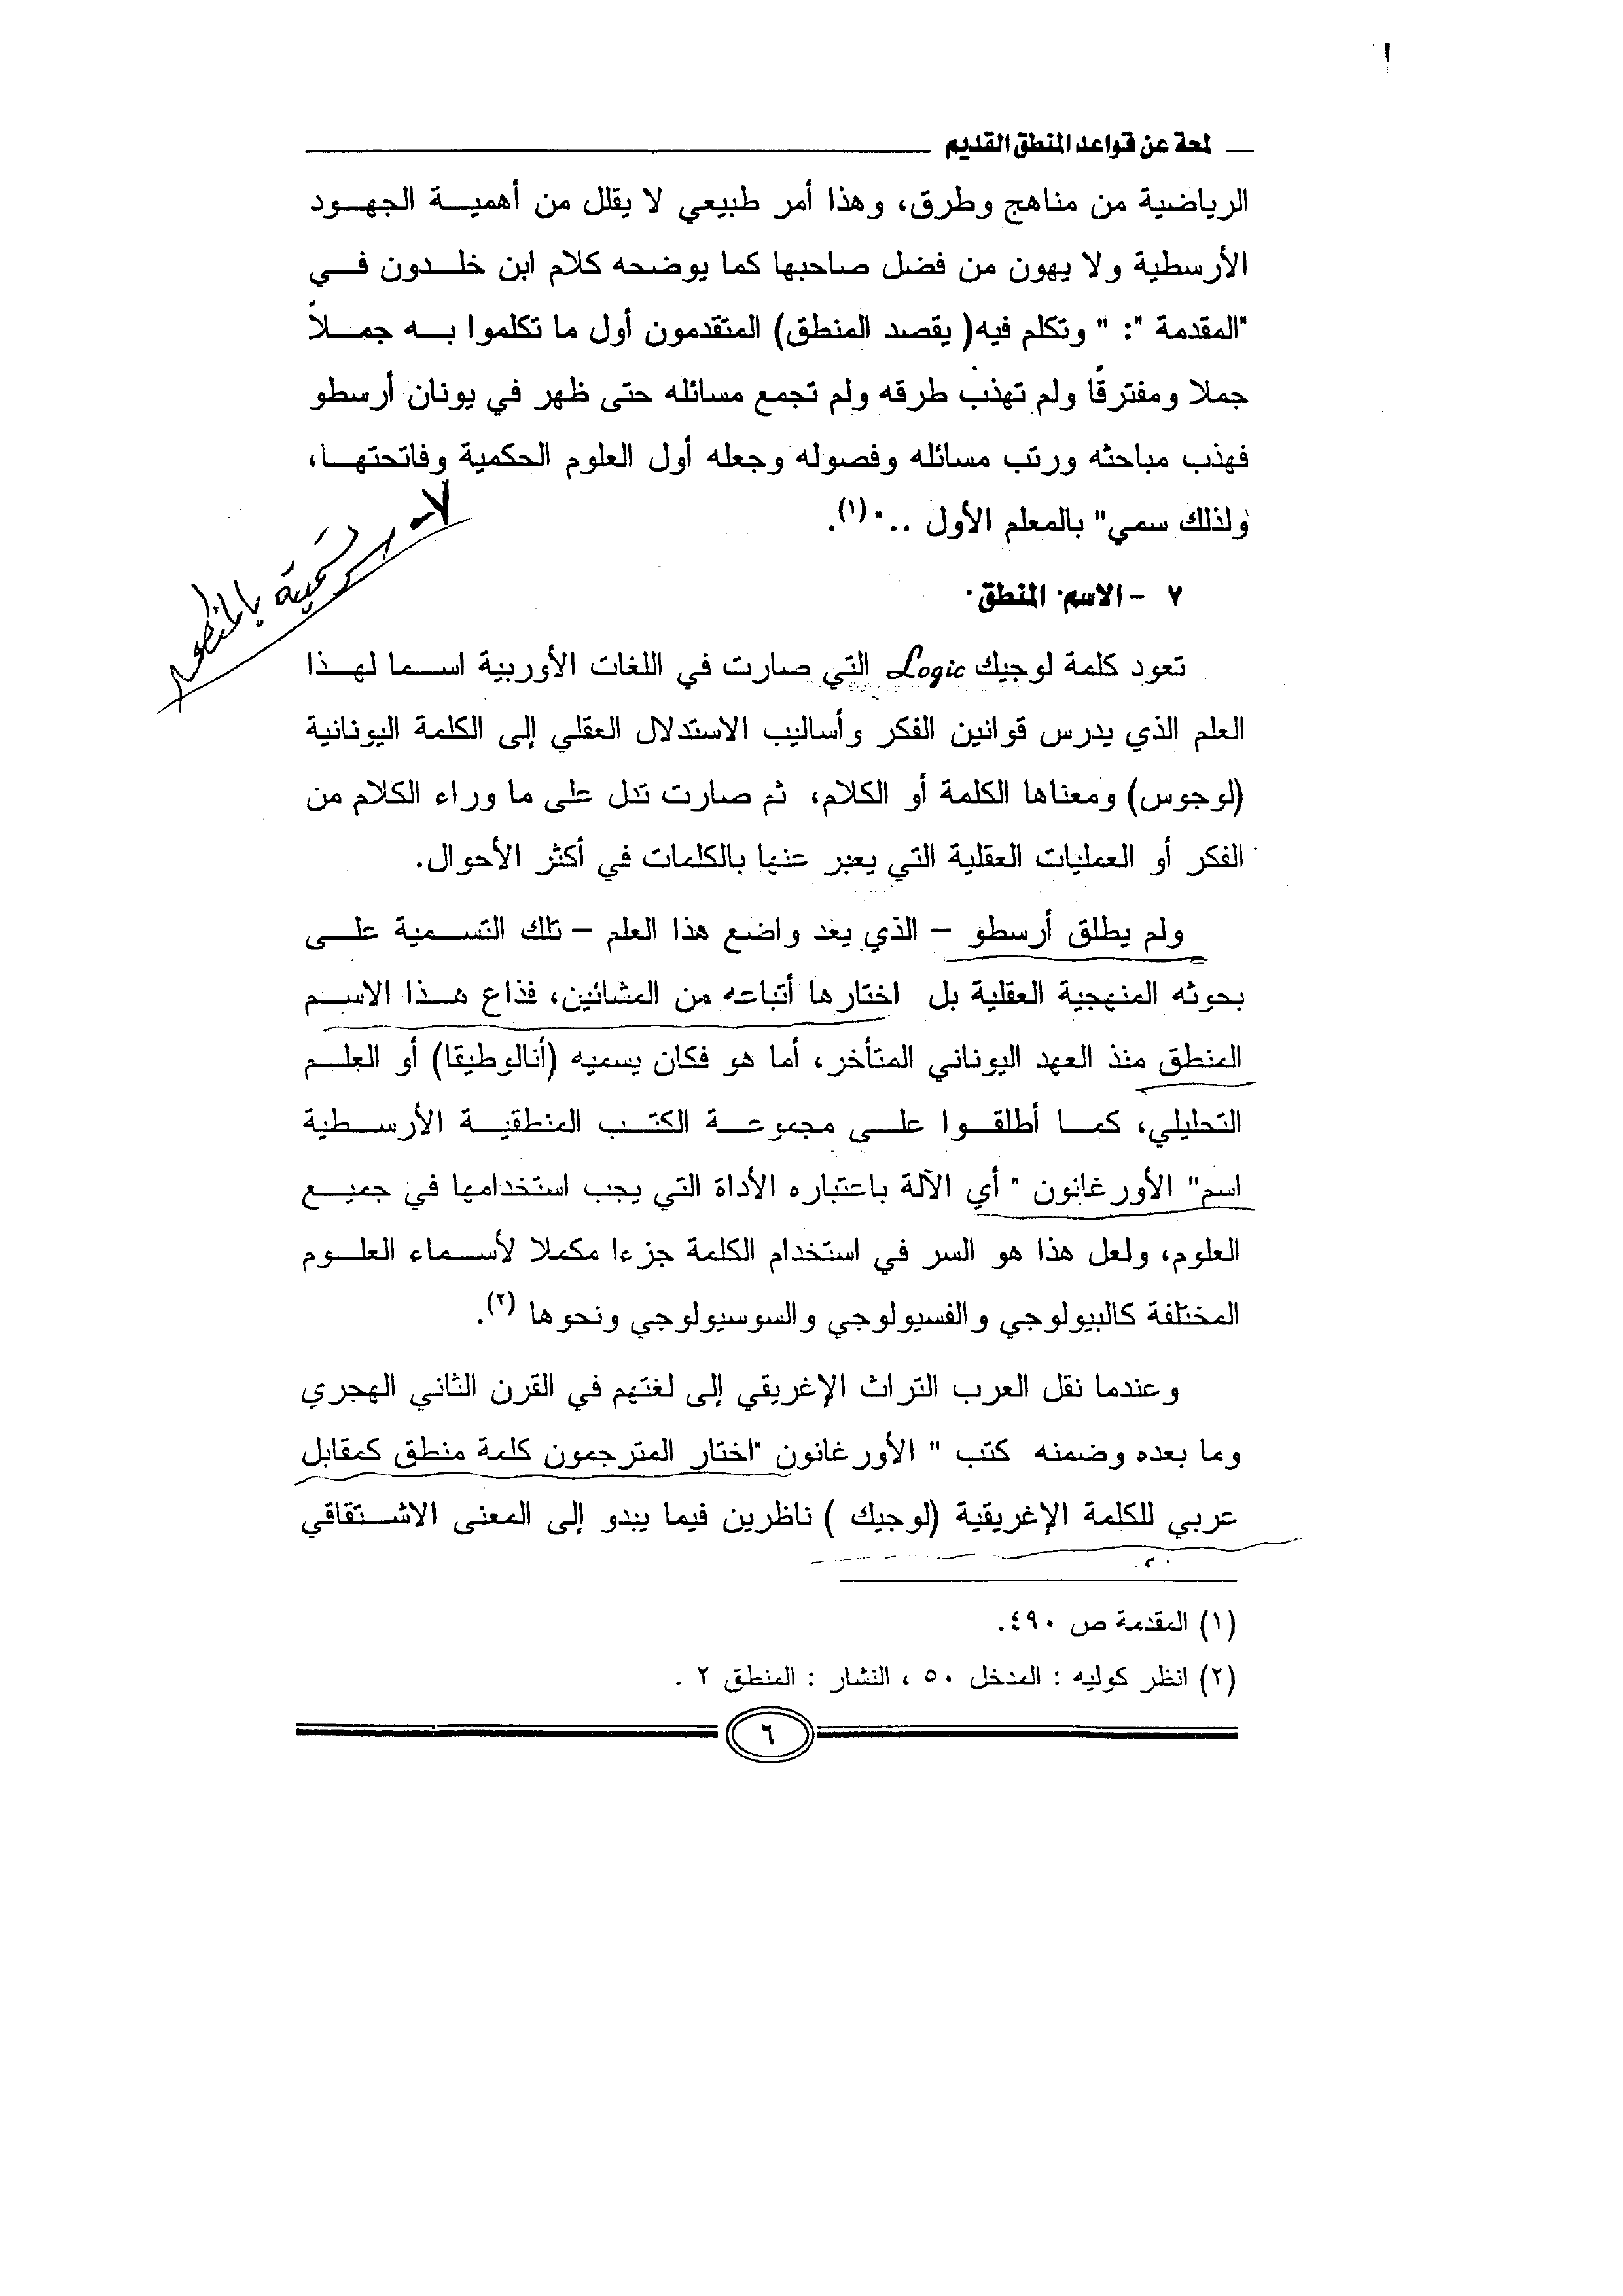 لمحة عن قواعد المنطق القديم
الرياضية من مناهج وطرق، وهذا أمر طبيعي لا يقلل من أهمية الجهود
الأرسطية ولا يهون من فضل صاحبها كما يوضحه كلام ابن خلدون في
"المقدمة ": " وتكلم فيه( يقصد المنطق) المتقدمون أول ما تكلموا به جملاً
جملا ومفترقًا ولم تهذب طرقه ولم تجمع مسائله حتى ظهر في يونان أرسطو
فهذب مباحثه ورتب مسائله وفصوله وجعله أول العلوم الحكمية وفاتحتها،
ولذلك سمي" بالمعلم الأول .." (١).
٧ - الاسم المنطق
تسمية بالمنطق
تعود كلمة لوجيك Logic التي صارت في اللغات الأوربية اسما لهذا
العلم الذي يدرس قوانين الفكر وأساليب الاستدلال العقلي إلى الكلمة اليونانية
(لوجوس) ومعناها الكلمة أو الكلام، ثم صارت تدل على ما وراء الكلام من
الفكر أو العمليات العقلية التي يعبر عنها بالكلمات في أكثر الأحوال.
ولم يطلق أرسطو – الذي يعد واضع هذا العلم – تلك التسمية على
بحوثه المنهجية العقلية بل اختارها أتباعه من المشائين، فذاع هذا الاسم
المنطق منذ العهد اليوناني المتأخر، أما هو فكان يسميه (أنالوطيقا) أو العلم
التحليلي، كما أطلقوا على مجموعة الكتب المنطقية الأرسطية
اسم" الأورغانون " أي الآلة باعتباره الأداة التي يجب استخدامها في جميع
العلوم، ولعل هذا هو السر في استخدام الكلمة جزءا مكملا لأسماء العلوم
المختلفة كالبيولوجي والفسيولوجي والسوسيولوجي ونحوها (٢).
وعندما نقل العرب التراث الإغريقي إلى لغتهم في القرن الثاني الهجري
وما بعده وضمنه كتب " الأورغانون "اختار المترجمون كلمة منطق كمقابل
عربي للكلمة الإغريقية (لوجيك ) ناظرين فيما يبدو إلى المعنى الاشتقاقي
(١) المقدمة ص ٤٩٠.
(٢) انظر كوليه : المدخل ٥٠ ، النشار : المنطق ٢ .
٦